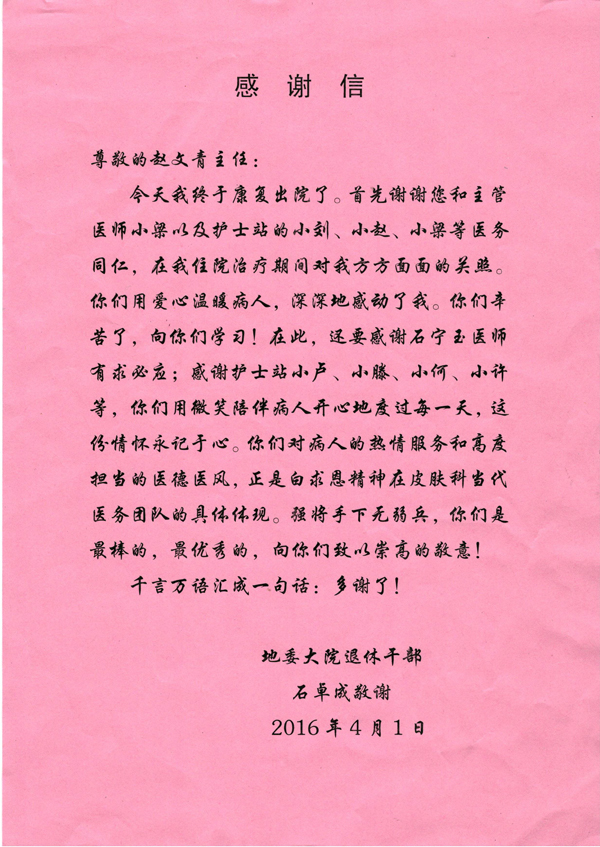 感谢信
尊敬的赵文青主任：
今天我终于康复出院了。首先谢谢您和主管
医师小梁以及护士站的小刘、小赵、小梁等医务
同仁，在我住院治疗期间对我方方面面的关照。
你们用爱心温暖病人，深深地感动了我。你们辛
苦了，向你们学习！在此，还要感谢石宁玉医师
有求必应；感谢护士站小卢、小滕、小何、小许
等，你们用微笑陪伴病人开心地度过每一天，这
份情怀永记于心。你们对病人的热情服务和高度
担当的医德医风，正是白求恩精神在皮肤科当代
医务团队的具体体现。强将手下无弱兵，你们是
最棒的，最优秀的，向你们致以崇高的敬意！
千言万语汇成一句话：多谢了！
地委大院退休干部
石卓成敬谢
2016年4月1日